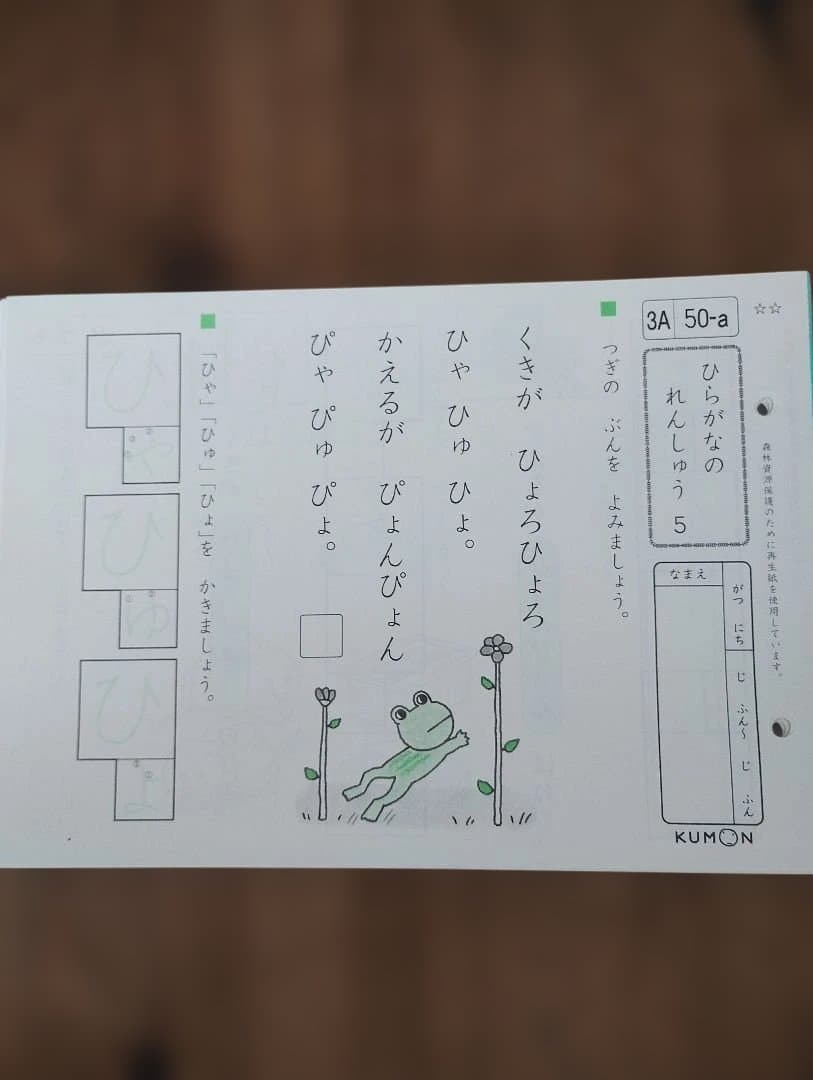 ☆☆
3A 50-a
森林資源保護のために再生紙を使用しています。
ひらがなの
れんしゅう 5
なまえ
がつ にち
じ ふん〜 じ ふん
KUMON
つぎの ぶんを よみましょう。
くきが ひょろひょろ
ひゃ ひゅ ひょ。
かえるが ぴょんぴょん
ぴゃ ぴゅ ぴょ。
「ひゃ」「ひゅ」「ひょ」を かきましょう。
ひゃ
ひゅ
ひょ